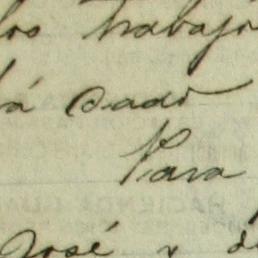 los trabajo
rá dado
Para
José y d